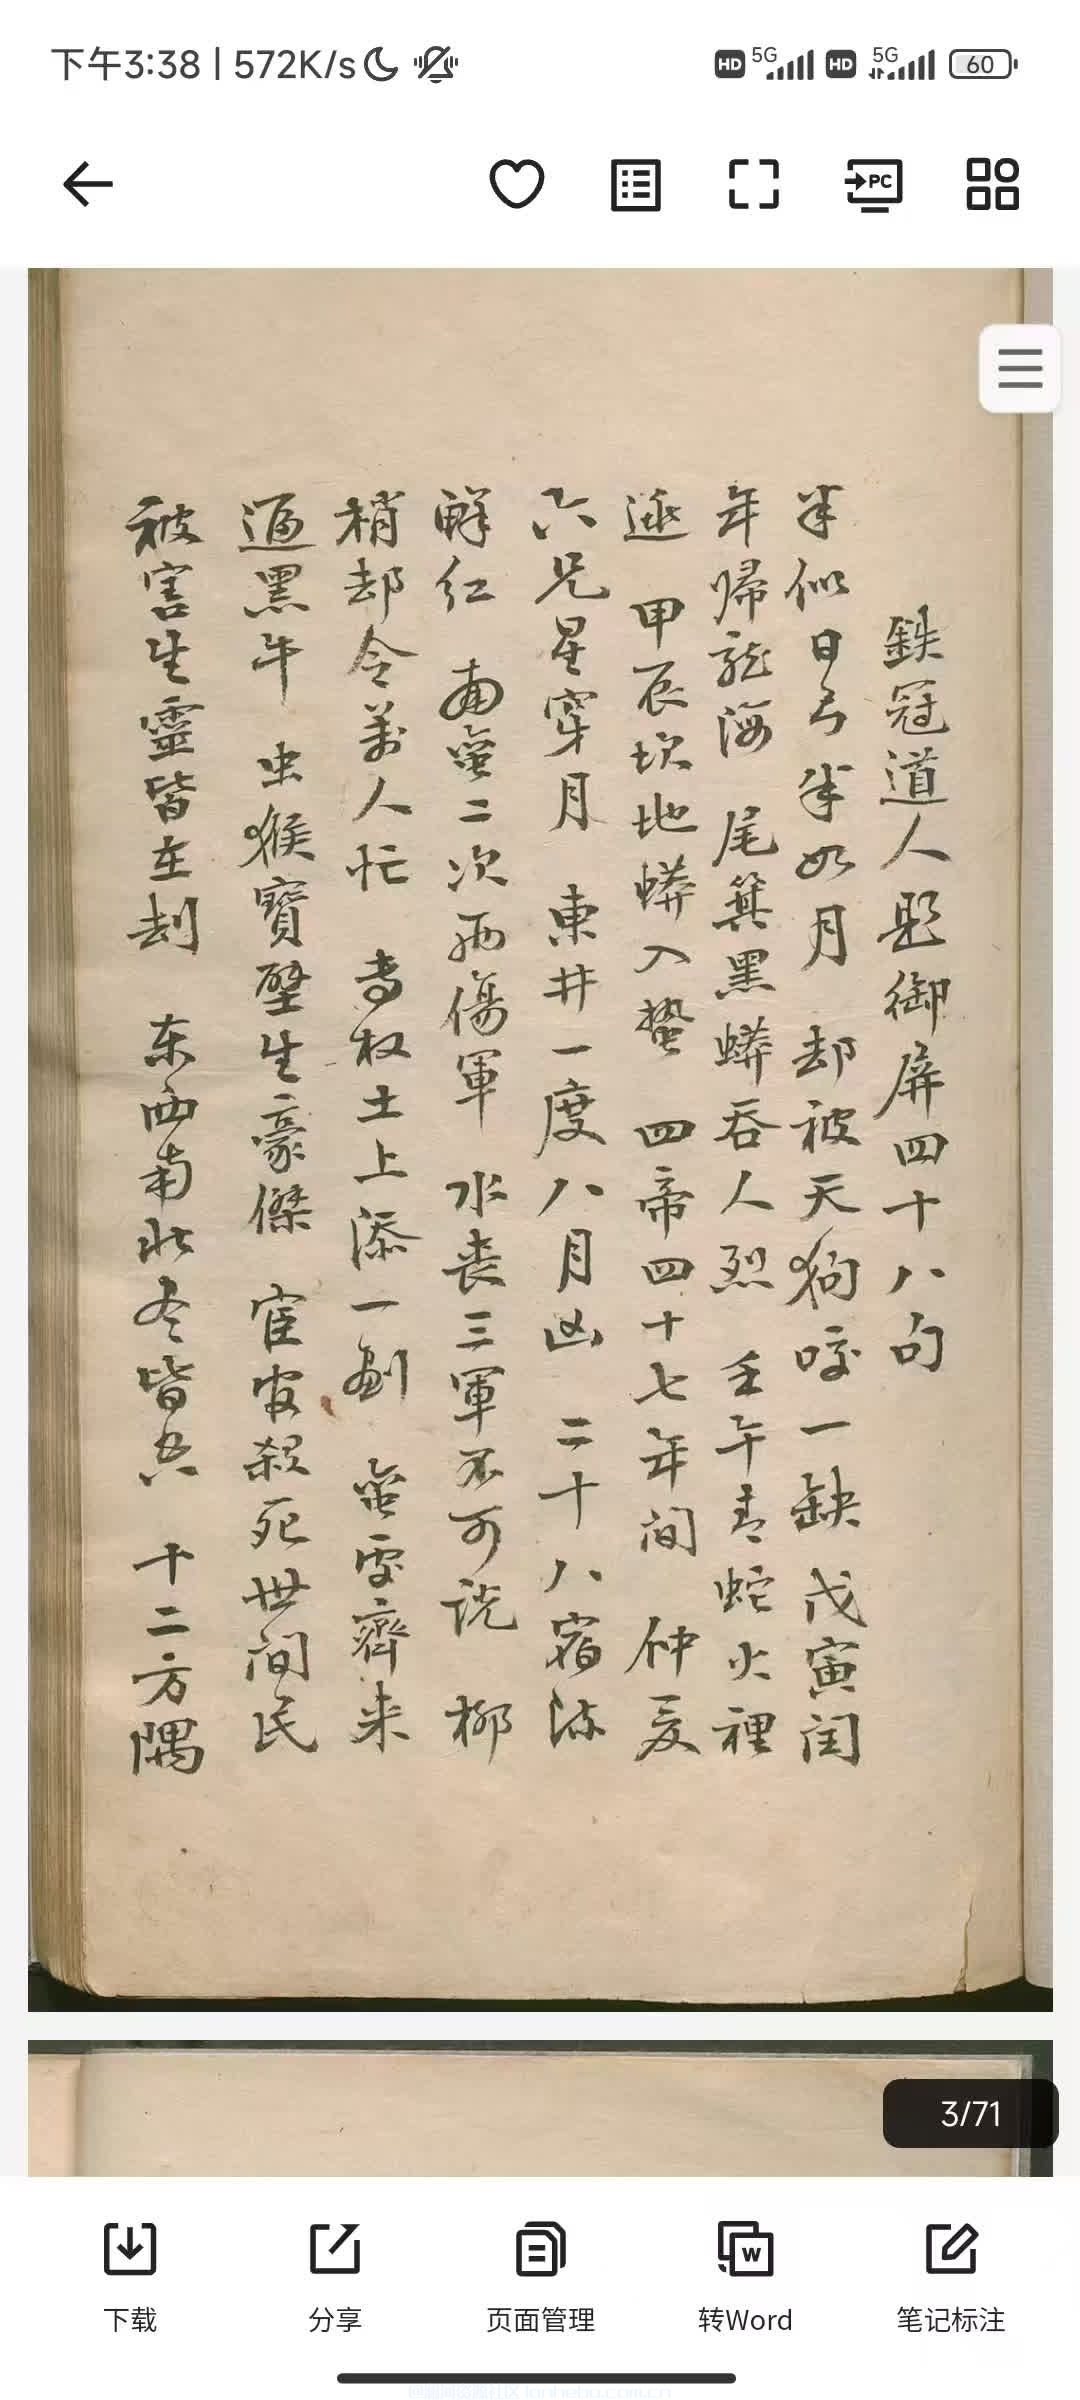 下午3:38 | 572K/s
HD 5G HD 5G 60
PC
鉄冠道人題御屏四十八句
半似日弓半如月 却被天狗咬一缺 戊寅闰
年歸龍海 尾箕黑蟒吞人烈 壬午青蛇火裡
逃 甲辰坎地蟒入蟄 四帝四十七年间 仲夏
六兄星穿月 東井一度八月凶 二十八宿
鮮红 南蛮二次两傷軍 水丧三軍不可说 柳
稍却令萬人忙 专权土上添一劍 蛮 齊来
逼黑牛 虫猴寶壁生豪傑 宦官殺死世间民
被害生靈皆在劫 东西南北冬皆 十二方隅
3/71
下载
分享
页面管理
转Word
笔记标注